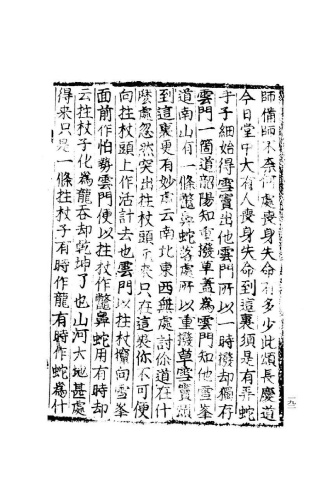 師備師不奈何處喪身失命有多少此頌長慶道
今日堂中大有人喪身失命到這裏須是有弄蛇
手子細始得雪竇出他雲門所以一時撥却獨存
雲門一箇道韶陽知重撥草蓋為雲門知他雪峯
道南山有一條鼈鼻蛇落處所以重撥草雪竇頌
到這裏更有妙處云南北東西無處討你道在什
麽處忽然突出拄杖頭元來只在這裏你不可便
向拄杖頭上作活計去也雲門以拄杖攛向雪峯
面前作怕勢雲門便以拄杖作鼈鼻蛇用有時却
云拄杖子化為龍吞却乾坤了也山河大地甚處
得来只是一條拄杖子有時作龍有時作蛇為什